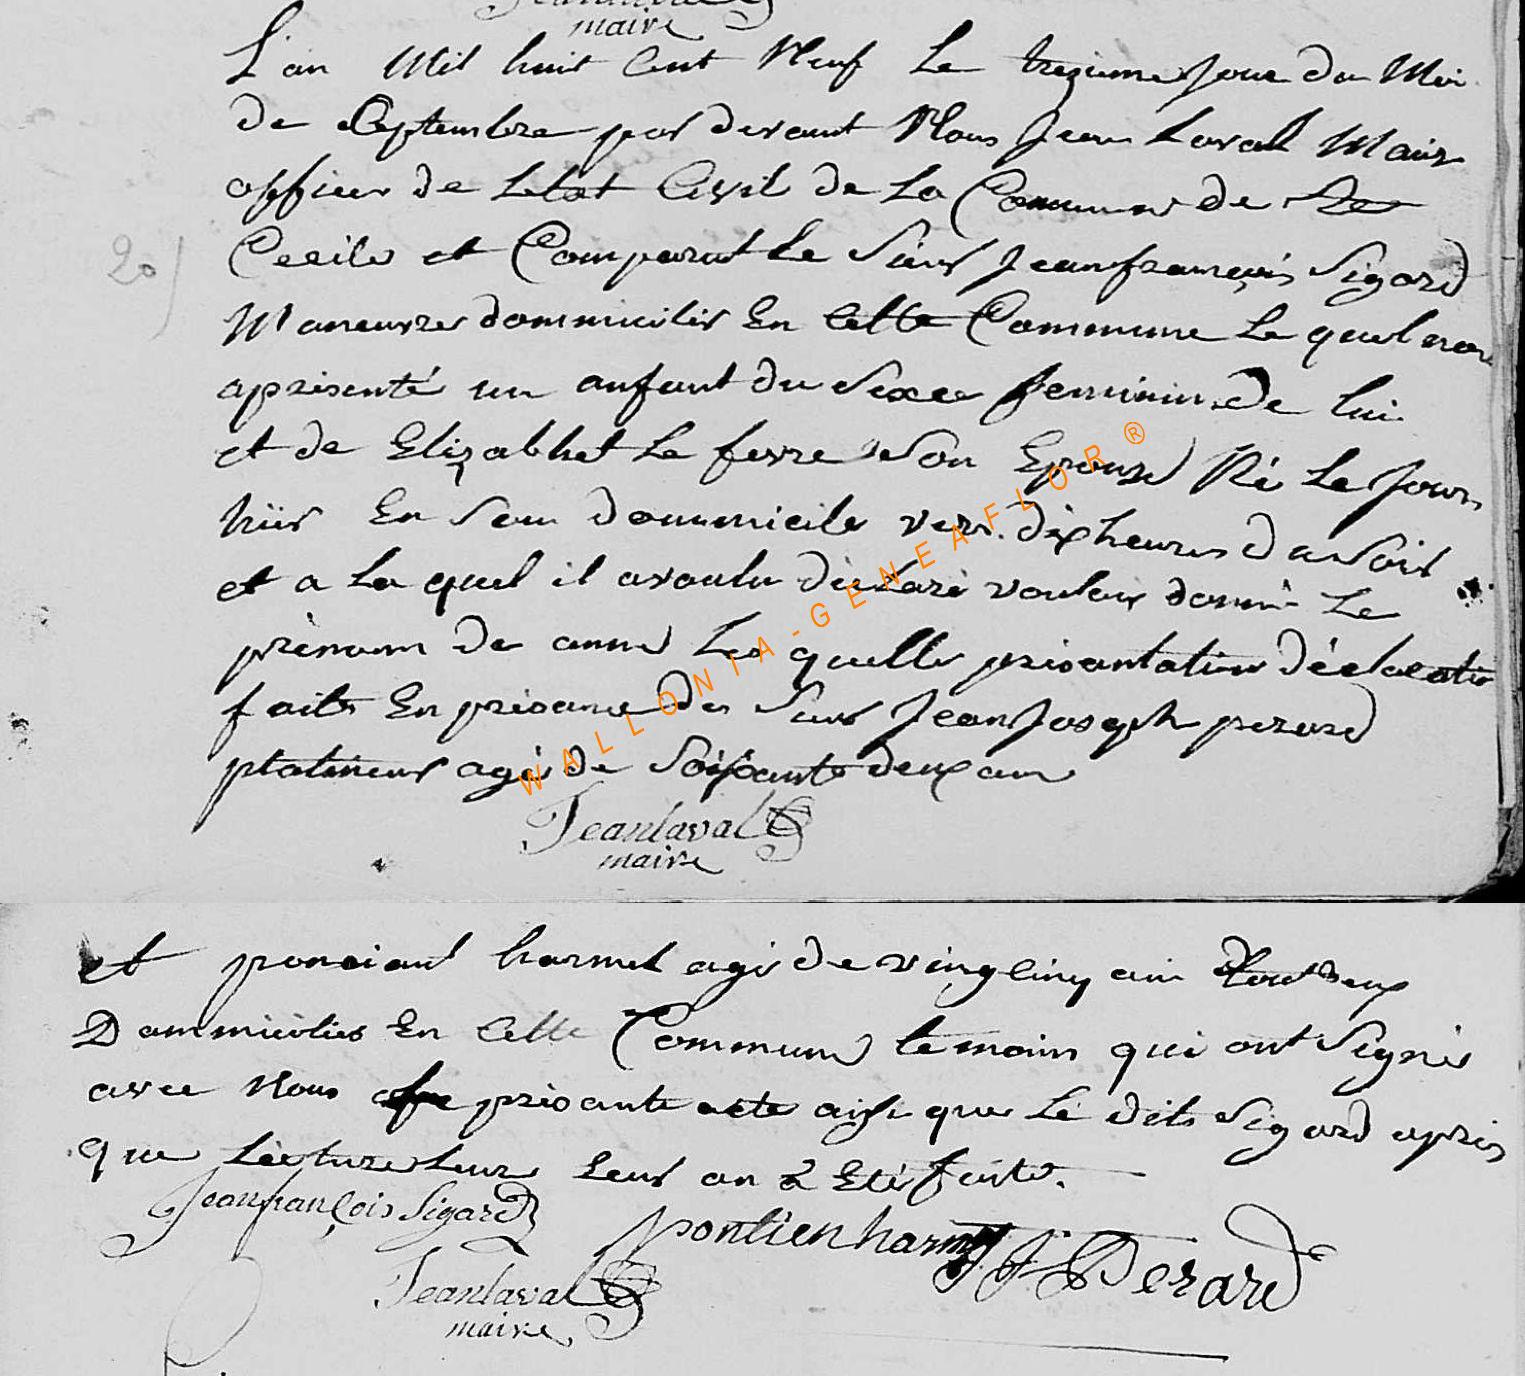 maire
L'an Mil huit Cent Neuf Le treziéme Jour du Moi
De Ceptembre par devant Nous Jean Laval Maire
officier De Letat Civil De La Commune De Ste
20/
Cecile et Comparut Le Sieur Jean françois Sigard
Maneuvre dommicilié En Cette Commune Le quel nou
aprésenté un anfant Du Sexee feminin De lui
et de Elizabhet Le fevre Son Epouse Né Le Jour
hiér En Son Dommicile vers Dix heures Du Soir
et a La quel il avoulu Déclaré vouloir donné Le
prénom De anne Les quelle présantation Déclaration
faite En présance Des Sieur Jean Joseph perard
platineur agé De Soixante Deux ans
Jean laval
maire
et ponciant harmel agé De vingt Cinq ain tout Deux
Dommicilié En Cette Commune temoin qui ont Signés
avec Nous présante acte ainsi que Le Dits Sigard aprés
que Lécture Leur Leur an a Eté faite.
Jean françois Sigard
pontien harmel
J J Perard
Jean laval
maire
WALLONIA-GENEAFLOR ®